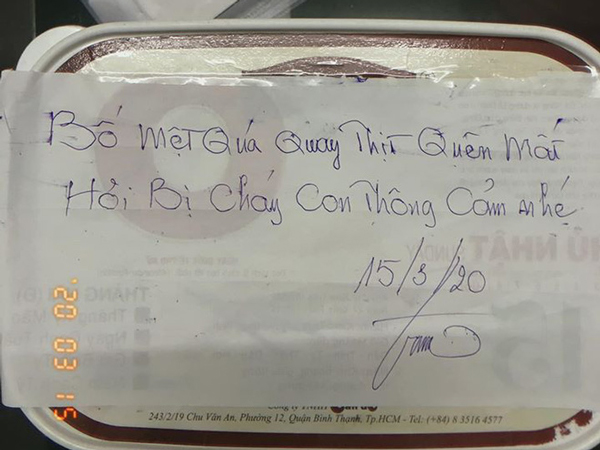 Bố Mệt Quá Quay Thịt Quên Mất
Hơi Bị Cháy Con Thông Cảm nhé
15/3/20
Tam
NHẬT
SUNDAY
THÁNG
243/2/19 Chu Văn An, Phường 12, Quận Bình Thạnh, Tp.HCM - Tel: (+84) 8 3516 4577
20 03 15